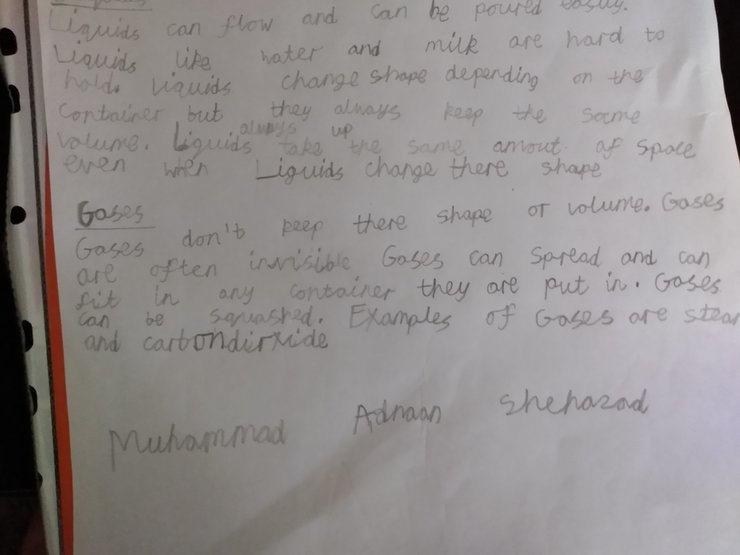 Liquids can flow and can be poured easily.
Liquids like water and milk are hard to
hold. Liquids change shape depending on the
Container but they always keep the same
volume. Liquids always take up the same amout of space
even when Liquids change there shape
Gases
Gases don't keep there shape or volume. Gases
are often invisible Gases can spread and can
fit in any container they are put in. Gases
can be squashed. Examples of Gases are steam
and carbondirxide
Muhammad Adnaan Shehazad